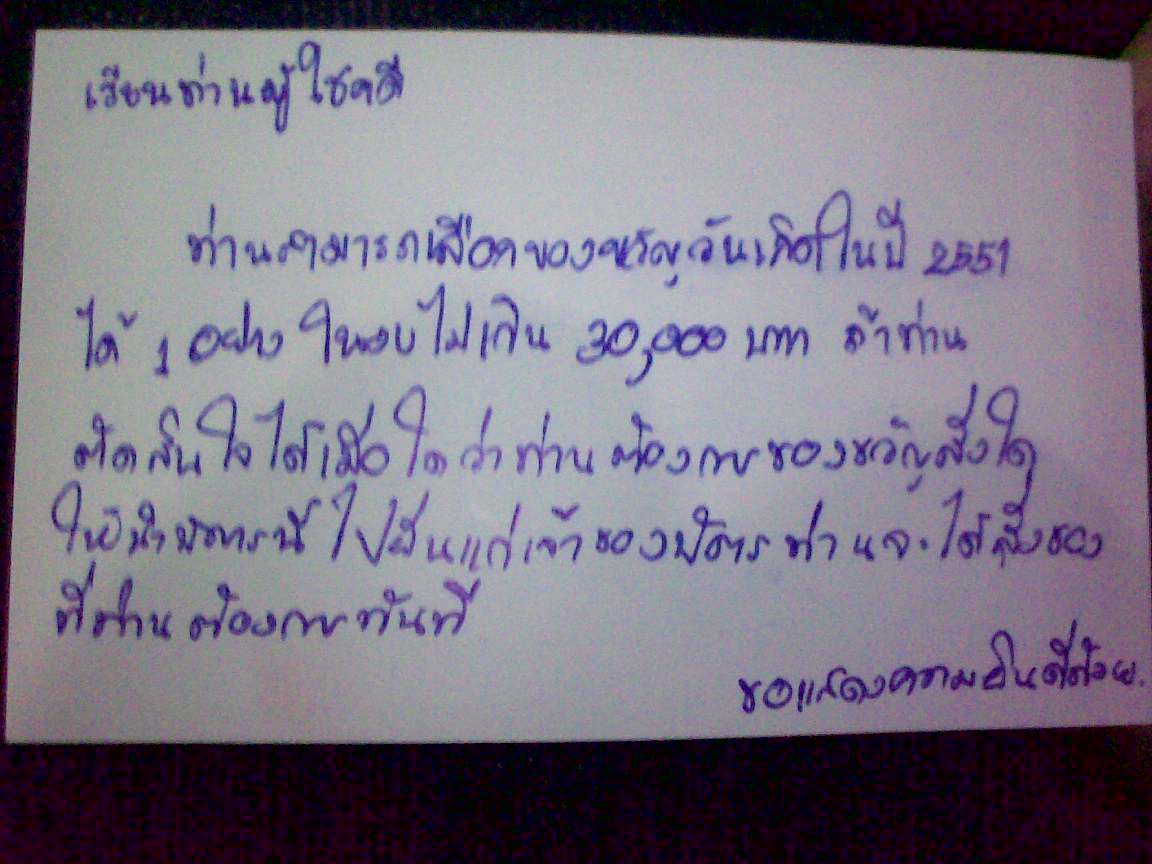 เรียนท่านผู้โชคดี
ท่านสามารถเลือกของขวัญวันเกิดในปี 2551
ได้ 1 อย่าง ในงบไม่เกิน 30,000 บาท ถ้าท่าน
ตัดสินใจได้เมื่อใดว่าท่านต้องการของขวัญสิ่งใด
ให้นำบัตรนี้ไปยื่นแก่เจ้าของบัตร ท่านจะได้สิ่งของ
ที่ท่านต้องการทันที
ขอแสดงความยินดีด้วย.